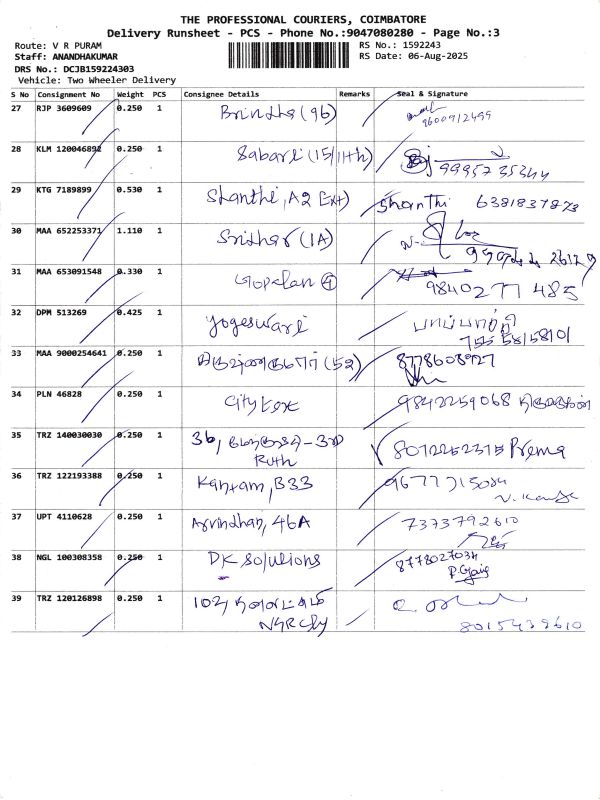 THE PROFESSIONAL COURIERS, COIMBATORE
Delivery Runsheet - PCS - Phone No.:9047080280 - Page No.:3
Route: V R PURAM
RS No.: 1592243
Staff: ANANDHAKUMAR
RS Date: 06-Aug-2025
DRS No.: DCJB159224303
Vehicle: Two Wheeler Delivery
S No Consignment No Weight PCS Consignee Details Remarks Seal & Signature
27 RJP 3609609 0.250 1 Brindha (96)
9600912499
28 KLM 120046892 0.250 1 Sabari (15/11th)
9995735344
29 KTG 7189899 0.530 1 Shanthi, A2 Ext) Shanthi 6381837873
30 MAA 652253371 1.110 1 Sridhar (1A)
31 MAA 653091548 0.330 1 Gopalan 4
9840277485
32 DPM 513269 0.425 1 Yogeswari
75558158101
33 MAA 9000254641 0.250 1 (52) 8778608927
34 PLN 46828 0.250 1 City tex 9842259068
35 TRZ 140030030 0.250 1 36, - 3rd 8072252375 Prema
36 TRZ 122193388 0.250 1 Kantam, B33 9677715084
37 UPT 4110628 0.250 1 Arvindhan, 46A 7373792610
38 NGL 100308358 0.250 1 DK Solutions 8778027034
39 TRZ 120126898 0.250 1 102,
8015439610